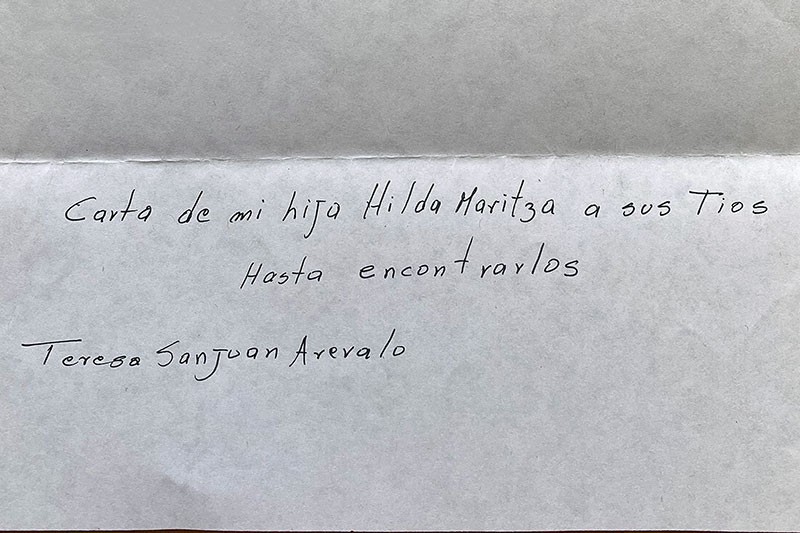 Carta de mi hija Hilda Maritza a sus Tios
Hasta encontrarlos
Teresa Sanjuan Arevalo